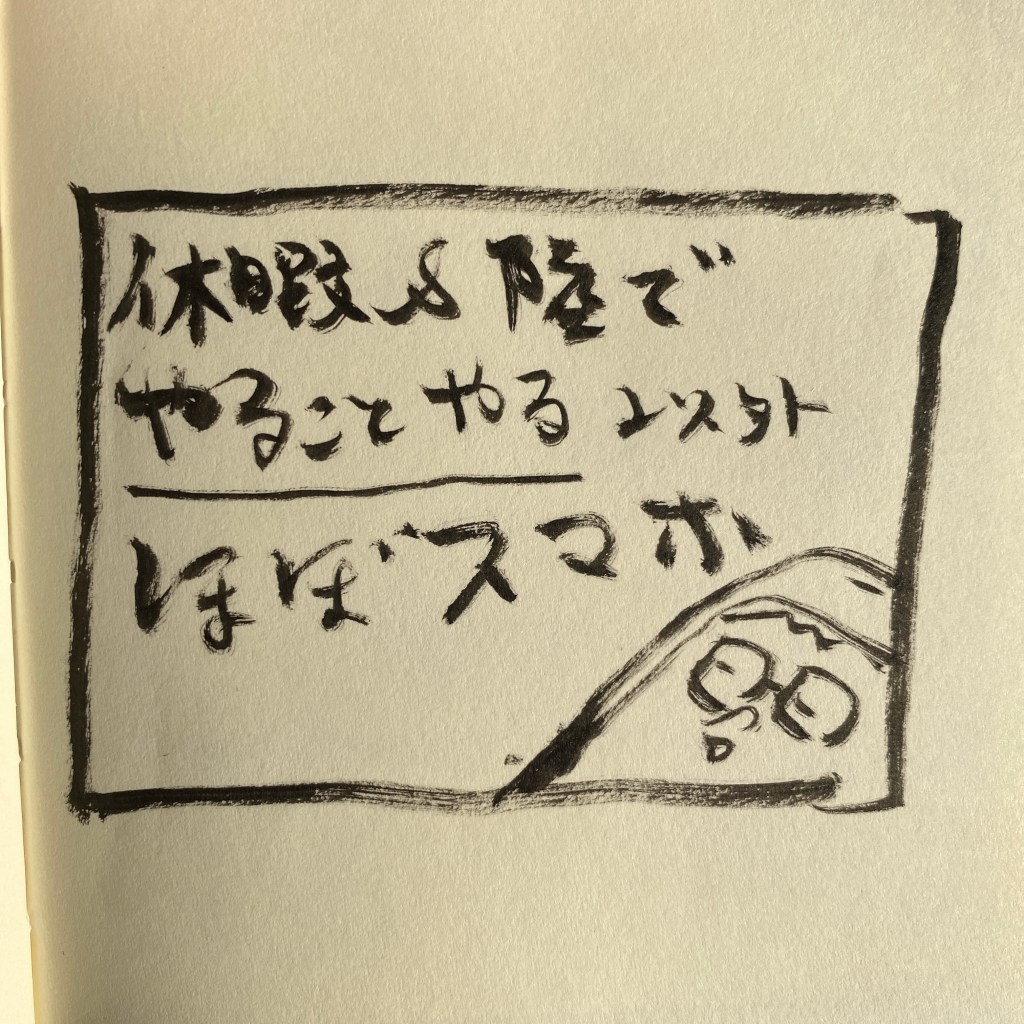 休暇&陸で
やることやる以外
ほぼスマホ